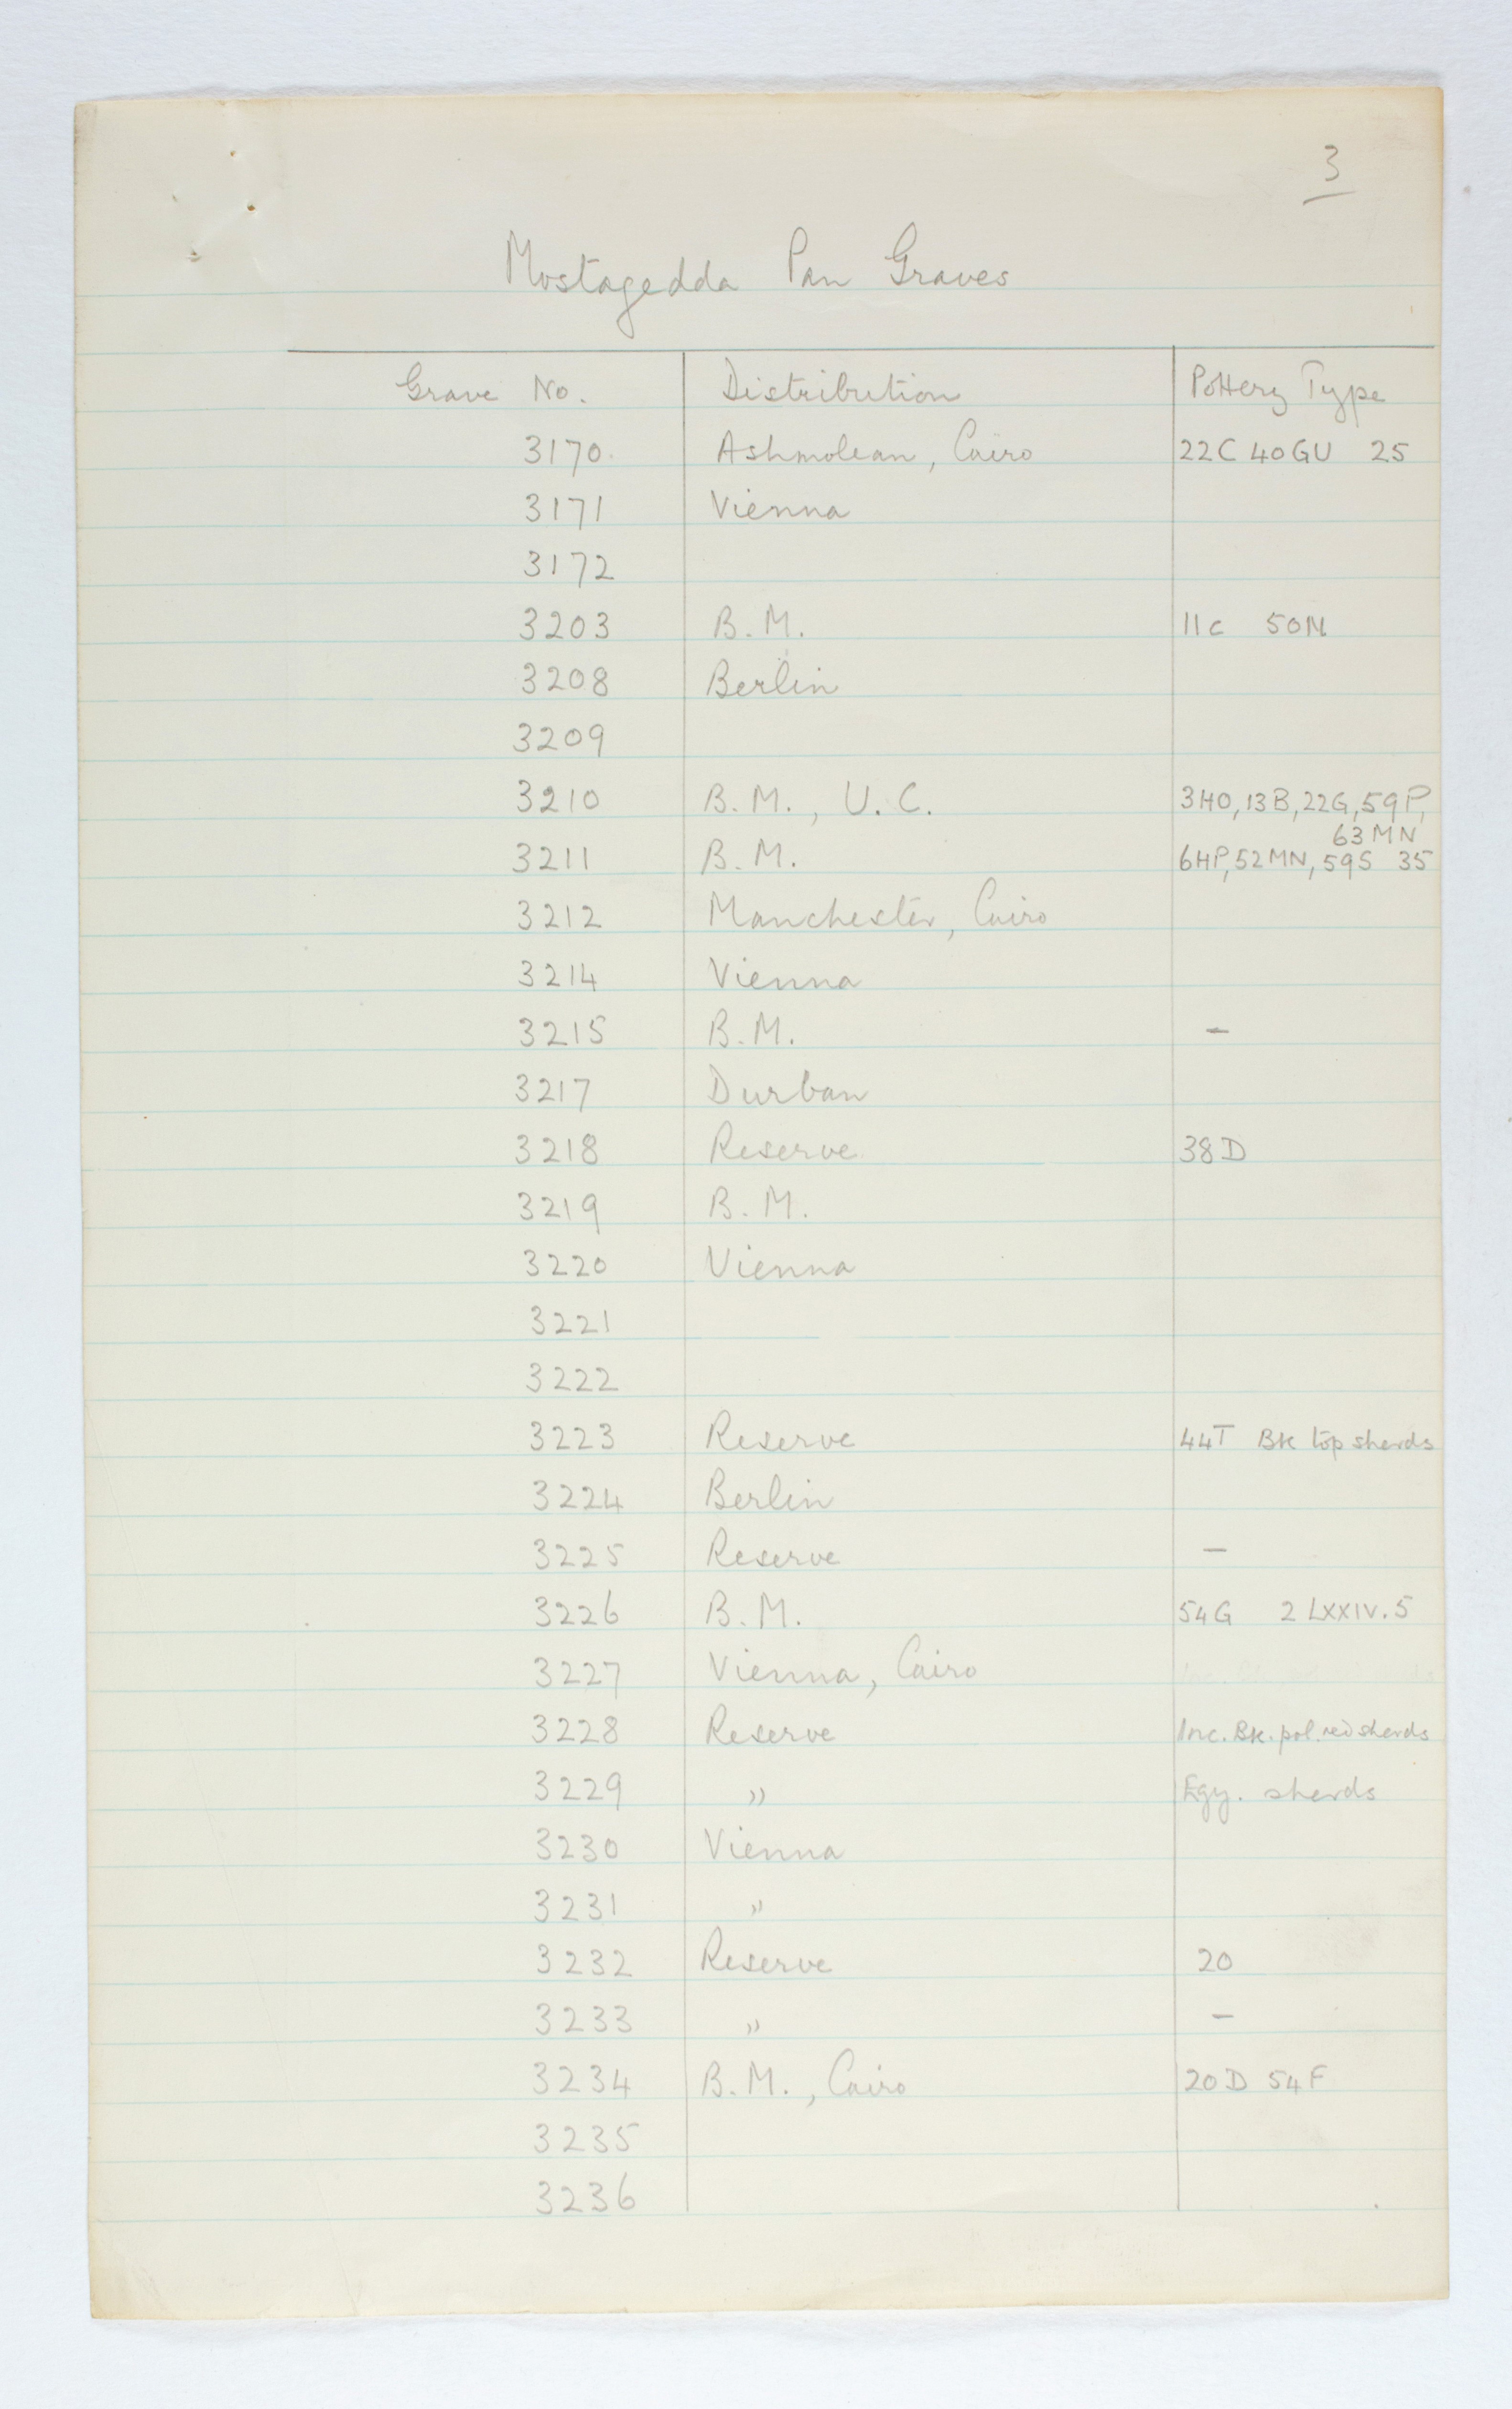 3
Mostagedda Pan Graves
Grave No. Distribution Pottery Type
3170 Ashmolean, Cairo 22C 40GU 25
3171 Vienna
3172
3203 B.M. 11C 50M
3208 Berlin
3209
3210 B.M., U.C. 3HO, 13B, 22G, 59P,
63MN
3211 B.M. 6HP, 52MN, 59S 35
3212 Manchester, Cairo
3214 Vienna
3215 B.M. –
3217 Durban
3218 Reserve 38D
3219 B.M.
3220 Vienna
3221
3222
3223 Reserve 44T Bk top sherds
3224 Berlin
3225 Reserve –
3226 B.M. 54G 2 LXXIV.5
3227 Vienna, Cairo
3228 Reserve Inc. Bk. pol. red sherds
3229 " Egy. sherds
3230 Vienna
3231 "
3232 Reserve 20
3233 " –
3234 B.M., Cairo 20D 54F
3235
3236